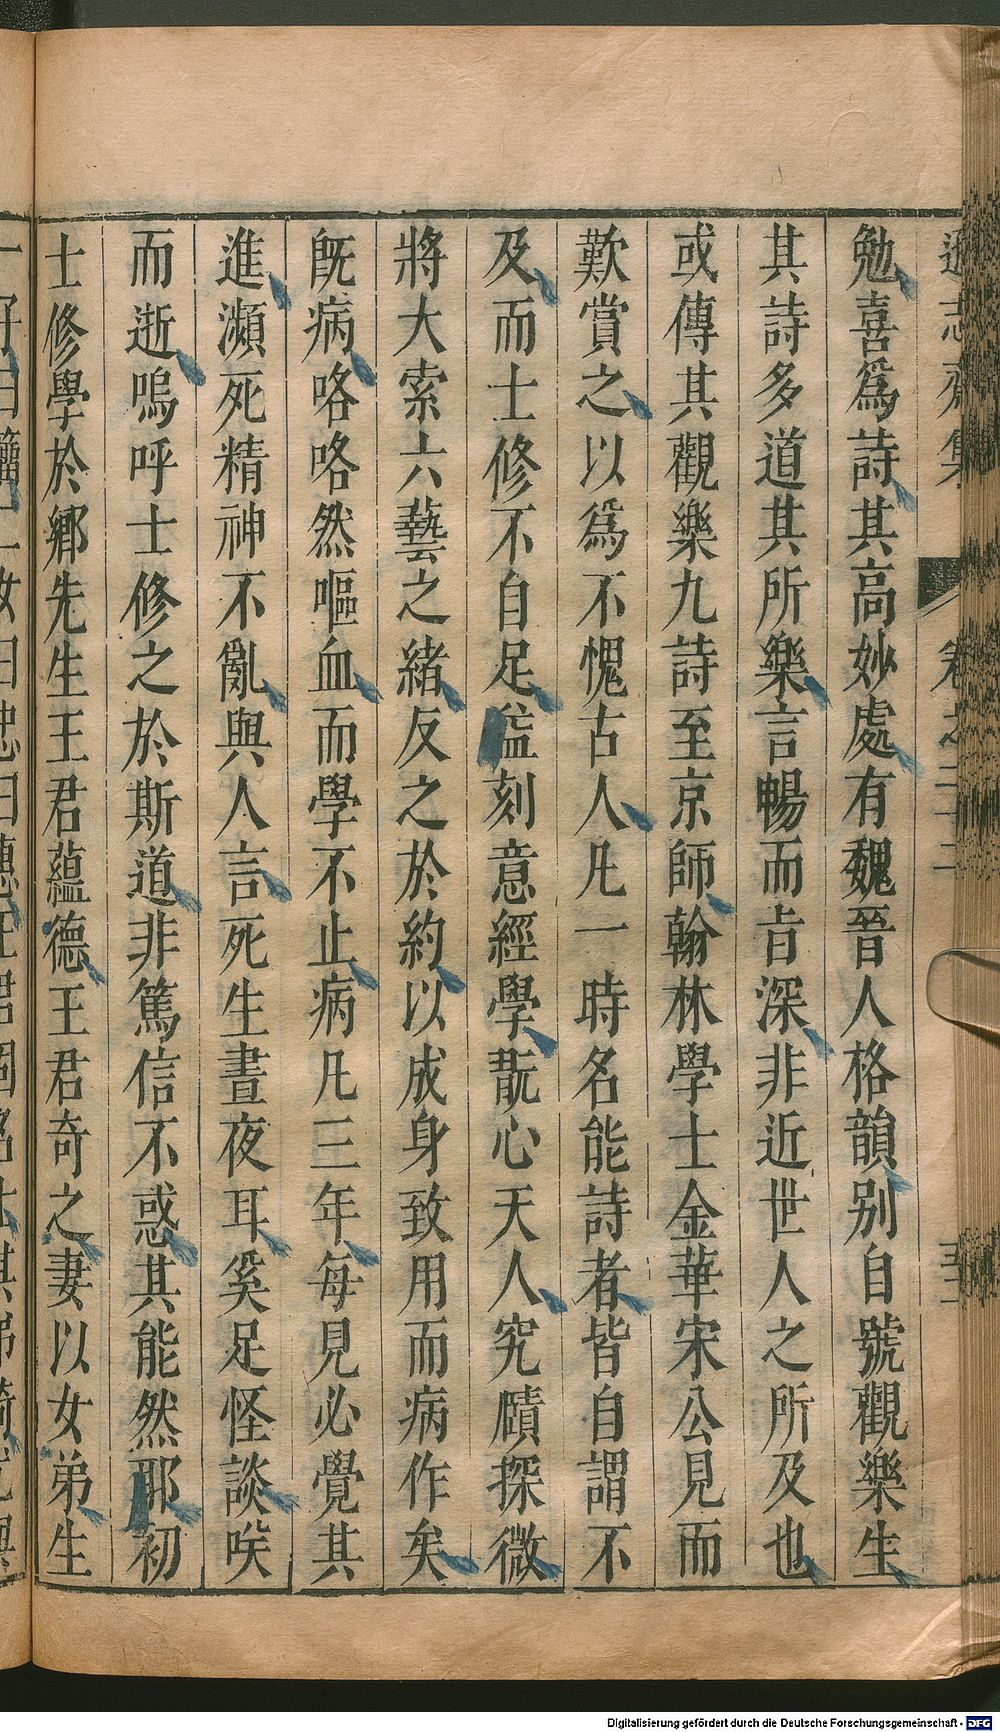 遜志齋集 卷之二十二
勉喜爲詩其高妙處有魏晉人格韻別自號觀樂生
其詩多道其所樂言暢而旨深非近世人之所及也
或傳其觀樂九詩至京師翰林學士金華宋公見而
歎賞之以爲不愧古人凡一時名能詩者皆自謂不
及而士修不自足益刻意經學翫心天人究賾探微
將大索六藝之緒反之於約以成身致用而病作矣
旣病咯咯然嘔血而學不止病凡三年每見必覺其
進瀕死精神不亂與人言死生晝夜耳奚足怪談唉
而逝嗚呼士修之於斯道非篤信不惑其能然耶初
士修學於鄉先生王君蘊德王君奇之妻以女弟生
Digitalisierung gefördert durch die Deutsche Forschungsgemeinschaft - DFG